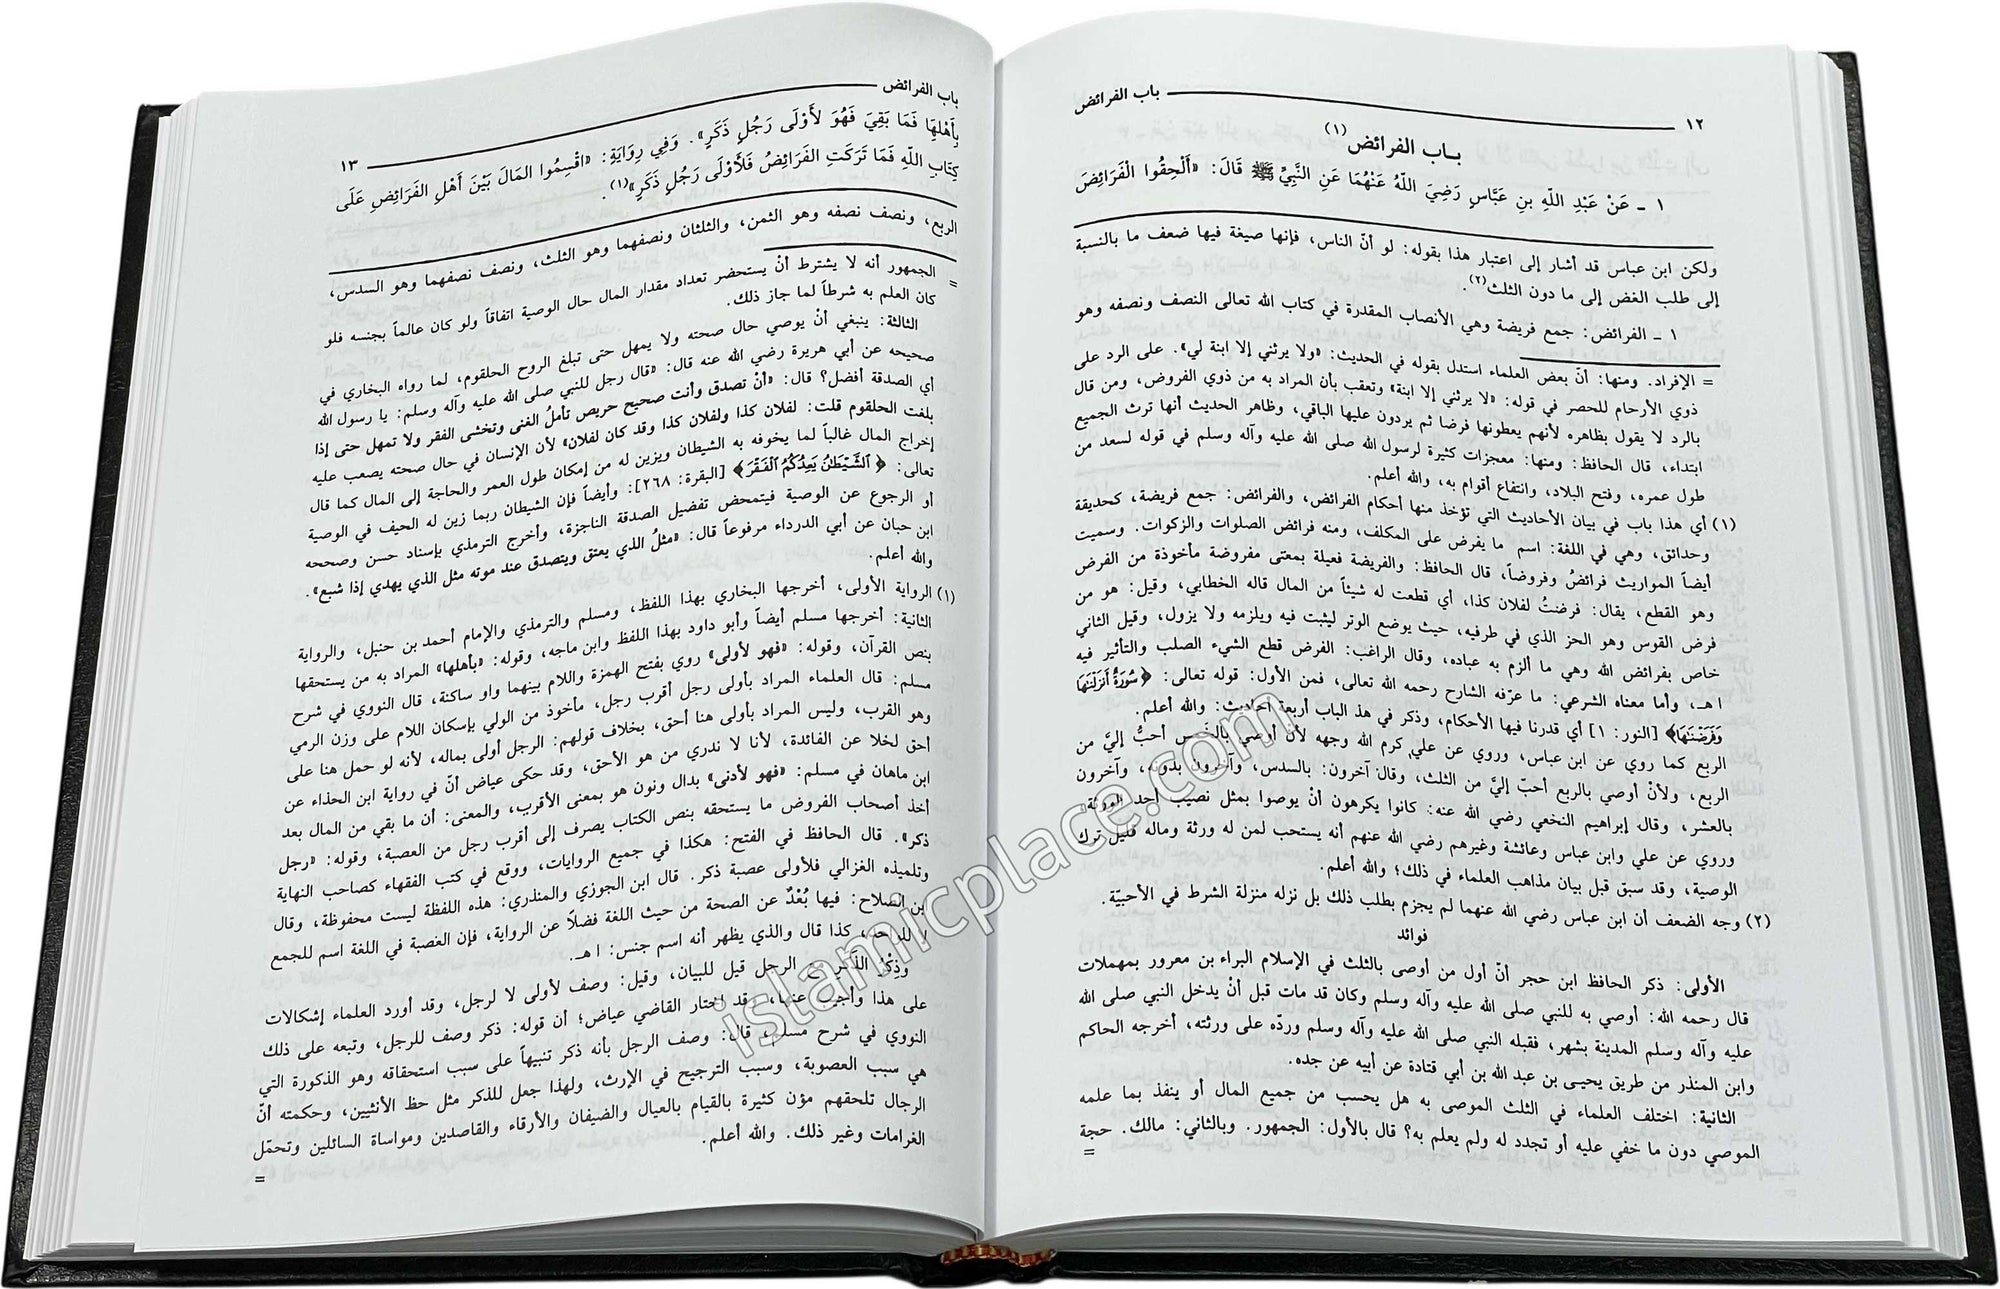 ١٢ باب الفرائض
بـاب الفرائض(١)
١ ـ عَنْ عَبْدِ اللّهِ بنِ عَبَّاسٍ رَضِيَ اللّهُ عَنْهُمَا عَنِ النَّبِيِّ ﷺ قَالَ: «أَلْحِقُوا الْفَرَائِضَ
ولكن ابن عباس قد أشار إلى اعتبار هذا بقوله: لو أنّ الناس، فإنها صيغة فيها ضعف ما بالنسبة
إلى طلب الغض إلى ما دون الثلث(٢).
١ ـ الفرائض: جمع فريضة وهي الأنصاب المقدرة في كتاب الله تعالى النصف ونصفه وهو
= الإفراد. ومنها: أنّ بعض العلماء استدل بقوله في الحديث: «ولا يرثني إلا ابنة لي». على الرد على
ذوي الأرحام للحصر في قوله: «لا يرثني إلا ابنة» وتعقب بأن المراد به من ذوي الفروض، ومن قال
بالرد لا يقول بظاهره لأنهم يعطونها فرضا ثم يردون عليها الباقي، وظاهر الحديث أنها ترث الجميع
ابتداء، قال الحافظ: ومنها: معجزات كثيرة لرسول الله صلى الله عليه وآله وسلم في قوله لسعد من
طول عمره، وفتح البلاد، وانتفاع أقوام به، والله أعلم.
(١) أي هذا باب في بيان الأحاديث التي تؤخذ منها أحكام الفرائض، والفرائض: جمع فريضة، كحديقة
وحدائق، وهي في اللغة: اسم ما يفرض على المكلف، ومنه فرائض الصلوات والزكوات. وسميت
أيضاً المواريث فرائضُ وفروضاً، قال الحافظ: والفريضة فعيلة بمعنى مفروضة مأخوذة من الفرض
وهو القطع، يقال: فرضتُ لفلان كذا، أي قطعت له شيئاً من المال قاله الخطابي، وقيل: هو من
فرض القوس وهو الحز الذي في طرفيه، حيث يوضع الوتر ليثبت فيه ويلزمه ولا يزول، وقيل الثاني
خاص بفرائض الله وهي ما ألزم به عباده، وقال الراغب: الفرض قطع الشيء الصلب والتأثير فيه
اهـ، وأما معناه الشرعي: ما عرّفه الشارح رحمه الله تعالى، فمن الأول: قوله تعالى: ﴿سُورَةٌ أَنزَلْنَاهَا
وَفَرَضْنَاهَا﴾ [النور: ١] أي قدرنا فيها الأحكام، وذكر في هذا الباب أربعة أحاديث: والله أعلم.
الربع كما روي عن ابن عباس، وروي عن علي كرم الله وجهه لأنْ أوصي بالخمس أحبُّ إليَّ من
الربع، ولأنْ أوصي بالربع أحبّ إليَّ من الثلث، وقال آخرون: بالسدس، وآخرون بدونه، وآخرون
بالعشر، وقال إبراهيم النخعي رضي الله عنه: كانوا يكرهون أنْ يوصوا بمثل نصيب أحد الورثة،
وروي عن علي وابن عباس وعائشة وغيرهم رضي الله عنهم أنه يستحب لمن له ورثة وماله قليل ترك
الوصية، وقد سبق قبل بيان مذاهب العلماء في ذلك؛ والله أعلم.
(٢) وجه الضعف أن ابن عباس رضي الله عنهما لم يجزم بطلب ذلك بل نزله منزلة الشرط في الأحبيّة.
فوائد
الأولى: ذكر الحافظ ابن حجر أنّ أول من أوصى بالثلث في الإسلام البراء بن معرور بمهملات
قال رحمه الله: أوصي به للنبي صلى الله عليه وآله وسلم وكان قد مات قبل أنْ يدخل النبي صلى الله
عليه وآله وسلم المدينة بشهر، فقبله النبي صلى الله عليه وآله وسلم وردّه على ورثته، أخرجه الحاكم
وابن المنذر من طريق يحيى بن عبد الله بن أبي قتادة عن أبيه عن جده.
الثانية: اختلف العلماء في الثلث الموصى به هل يحسب من جميع المال أو ينفذ بما علمه
الموصي دون ما خفي عليه أو تجدد له ولم يعلم به؟ قال بالأول: الجمهور. وبالثاني: مالك. حجة
=
باب الفرائض ١٣
بِأَهْلِهَا فَمَا بَقِيَ فَهُوَ لأَوْلَى رَجُلٍ ذَكَرٍ». وَفِي رِوَايَةٍ: «اقْسِمُوا المَالَ بَيْنَ أَهْلِ الفَرَائِضِ عَلَى
كِتَابِ اللّهِ فَمَا تَرَكَتِ الفَرَائِضُ فَلأَوْلَى رَجُلٍ ذَكَرٍ»(١).
الربع، ونصف نصفه وهو الثمن، والثلثان ونصفهما وهو الثلث، ونصف نصفهما وهو السدس،
= الجمهور أنه لا يشترط أنْ يستحضر تعداد مقدار المال حال الوصية اتفاقاً ولو كان عالماً بجنسه فلو
كان العلم به شرطاً لما جاز ذلك.
الثالثة: ينبغي أنْ يوصي حال صحته ولا يمهل حتى تبلغ الروح الحلقوم، لما رواه البخاري في
صحيحه عن أبي هريرة رضي الله عنه قال: «قال رجل للنبي صلى الله عليه وآله وسلم: يا رسول الله
أي الصدقة أفضل؟ قال: «أنْ تصدق وأنت صحيح حريص تأملُ الغنى وتخشى الفقر ولا تمهل حتى إذا
بلغت الحلقوم قلت: لفلان كذا ولفلان كذا وقد كان لفلان» لأن الإنسان في حال صحته يصعب عليه
إخراج المال غالباً لما يخوفه به الشيطان ويزين له من إمكان طول العمر والحاجة إلى المال كما قال
تعالى: ﴿الشَّيْطَانُ يَعِدُكُمُ الْفَقْرَ﴾ [البقرة: ٢٦٨]: وأيضاً فإن الشيطان ربما زين له الحيف في الوصية
أو الرجوع عن الوصية فيتمحض تفضيل الصدقة الناجزة، وأخرج الترمذي بإسناد حسن وصححه
ابن حبان عن أبي الدرداء مرفوعاً قال: «مثلُ الذي يعتق ويتصدق عند موته مثل الذي يهدي إذا شبع».
والله أعلم.
(١) الرواية الأولى، أخرجها البخاري بهذا اللفظ، ومسلم والترمذي والإمام أحمد بن حنبل، والرواية
الثانية: أخرجها مسلم أيضاً وأبو داود بهذا اللفظ وابن ماجه، وقوله: «بأهلها» المراد به من يستحقها
بنص القرآن، وقوله: «فهو لأولى» روي بفتح الهمزة واللام بينهما واو ساكنة، قال النووي في شرح
مسلم: قال العلماء المراد بأولى رجل أقرب رجل، مأخوذ من الولي بإسكان اللام على وزن الرمي
وهو القرب، وليس المراد بأولى هنا أحق، بخلاف قولهم: الرجل أولى بماله، لأنه لو حمل هنا على
أحق لخلا عن الفائدة، لأنا لا ندري من هو الأحق، وقد حكى عياض أنّ في رواية ابن الحذاء عن
ابن ماهان في مسلم: «فهو لأدنى» بدال ونون هو بمعنى الأقرب، والمعنى: أن ما بقي من المال بعد
أخذ أصحاب الفروض ما يستحقه بنص الكتاب يصرف إلى أقرب رجل من العصبة، وقوله: «رجل
ذكر». قال الحافظ في الفتح: هكذا في جميع الروايات، ووقع في كتب الفقهاء كصاحب النهاية
وتلميذه الغزالي فلأولى عصبة ذكر. قال ابن الجوزي والمنذري: هذه اللفظة ليست محفوظة، وقال
ابن الصلاح: فيها بُعْدٌ عن الصحة من حيث اللغة فضلاً عن الرواية، فإن العصبة في اللغة اسم للجمع
لا للواحد، كذا قال والذي يظهر أنه اسم جنس: اهـ.
وذِكْر الذكر مع الرجل قيل للبيان، وقيل: وصف لأولى لا لرجل، وقد أورد العلماء إشكالات
على هذا وأجيب عنها، وقد اختار القاضي عياض؛ أن قوله: ذكر وصف للرجل، وتبعه على ذلك
النووي في شرح مسلم، قال: وصف الرجل بأنه ذكر تنبيهاً على سبب استحقاقه وهو الذكورة التي
هي سبب العصوبة، وسبب الترجيح في الإرث، ولهذا جعل للذكر مثل حظ الأنثيين، وحكمته أنّ
الرجال تلحقهم مؤن كثيرة بالقيام بالعيال والضيفان والأرقاء والقاصدين ومواساة السائلين وتحمّل
الغرامات وغير ذلك. والله أعلم.
=
islamicplace.com